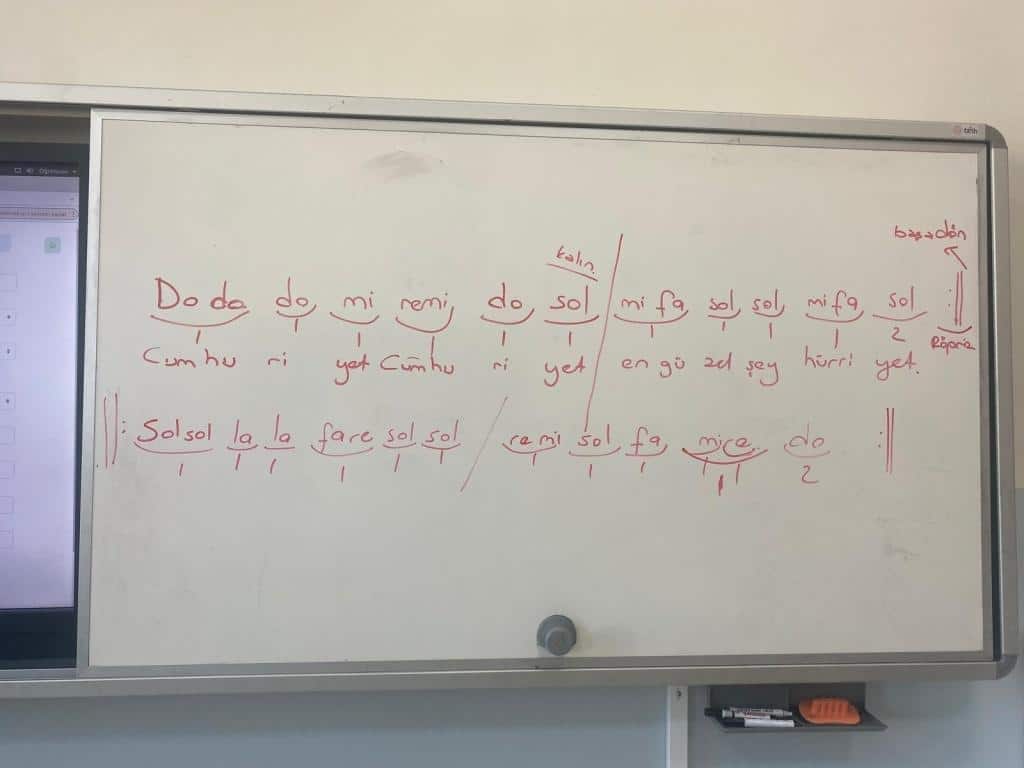 başadön
kalın
Do do do mi remi do sol / mi fa sol sol mi fa sol :||
1 1 1 1 1 1 1 1 1 1 2 Röpriz
Cumhu ri yet Cumhu ri yet en gü zel şey hürri yet.
||: Sol sol la la fare sol sol / remi sol fa mire do :||
1 1 1 1 1 1 1 1 1 1 2